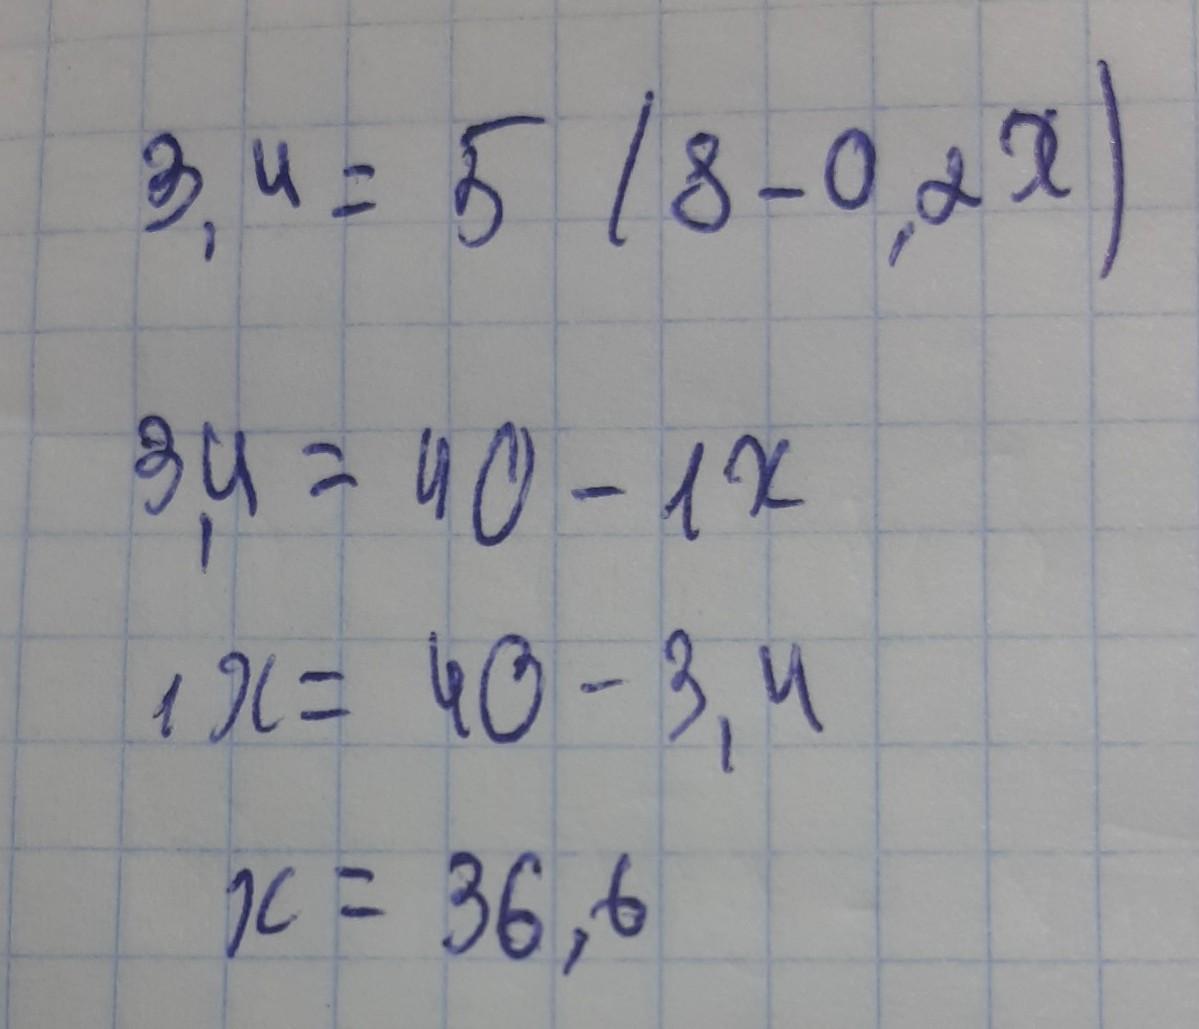 3,4 = 5 (8 - 0,2x)
3,4 = 40 - 1x
1x = 40 - 3,4
x = 36,6